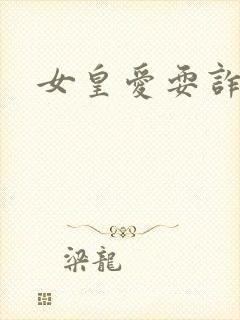 女皇愛耍詐
梁龍